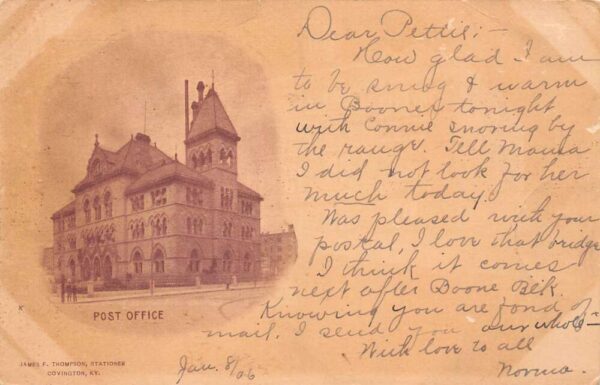 Dear Pettie;-
How glad I am
to be snug & warm
in Boones tonight
with Connie snoring by
the range. Tell Mama
I did not look for her
much today.
Was pleased with your
postal, I love that bridge
I think it comes
next after Boone Blk.
Knowing you are fond of
mail, I send you our whole-
With love to all
Norma.
Jan. 8/06
POST OFFICE
JAMES F. THOMPSON, STATIONER
COVINGTON, KY.